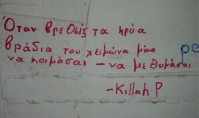 Όταν βρεθείς τα κρύα
βράδια του χειμώνα μόνο
να κοιμάσαι - να με θυμάσαι
-Killah P